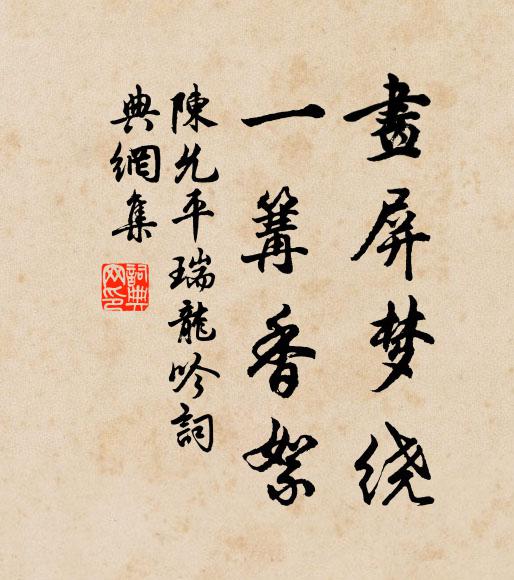 畫屏梦绕
一篝香絮
陳允平瑞龍吟詞
典網集
詞典網印